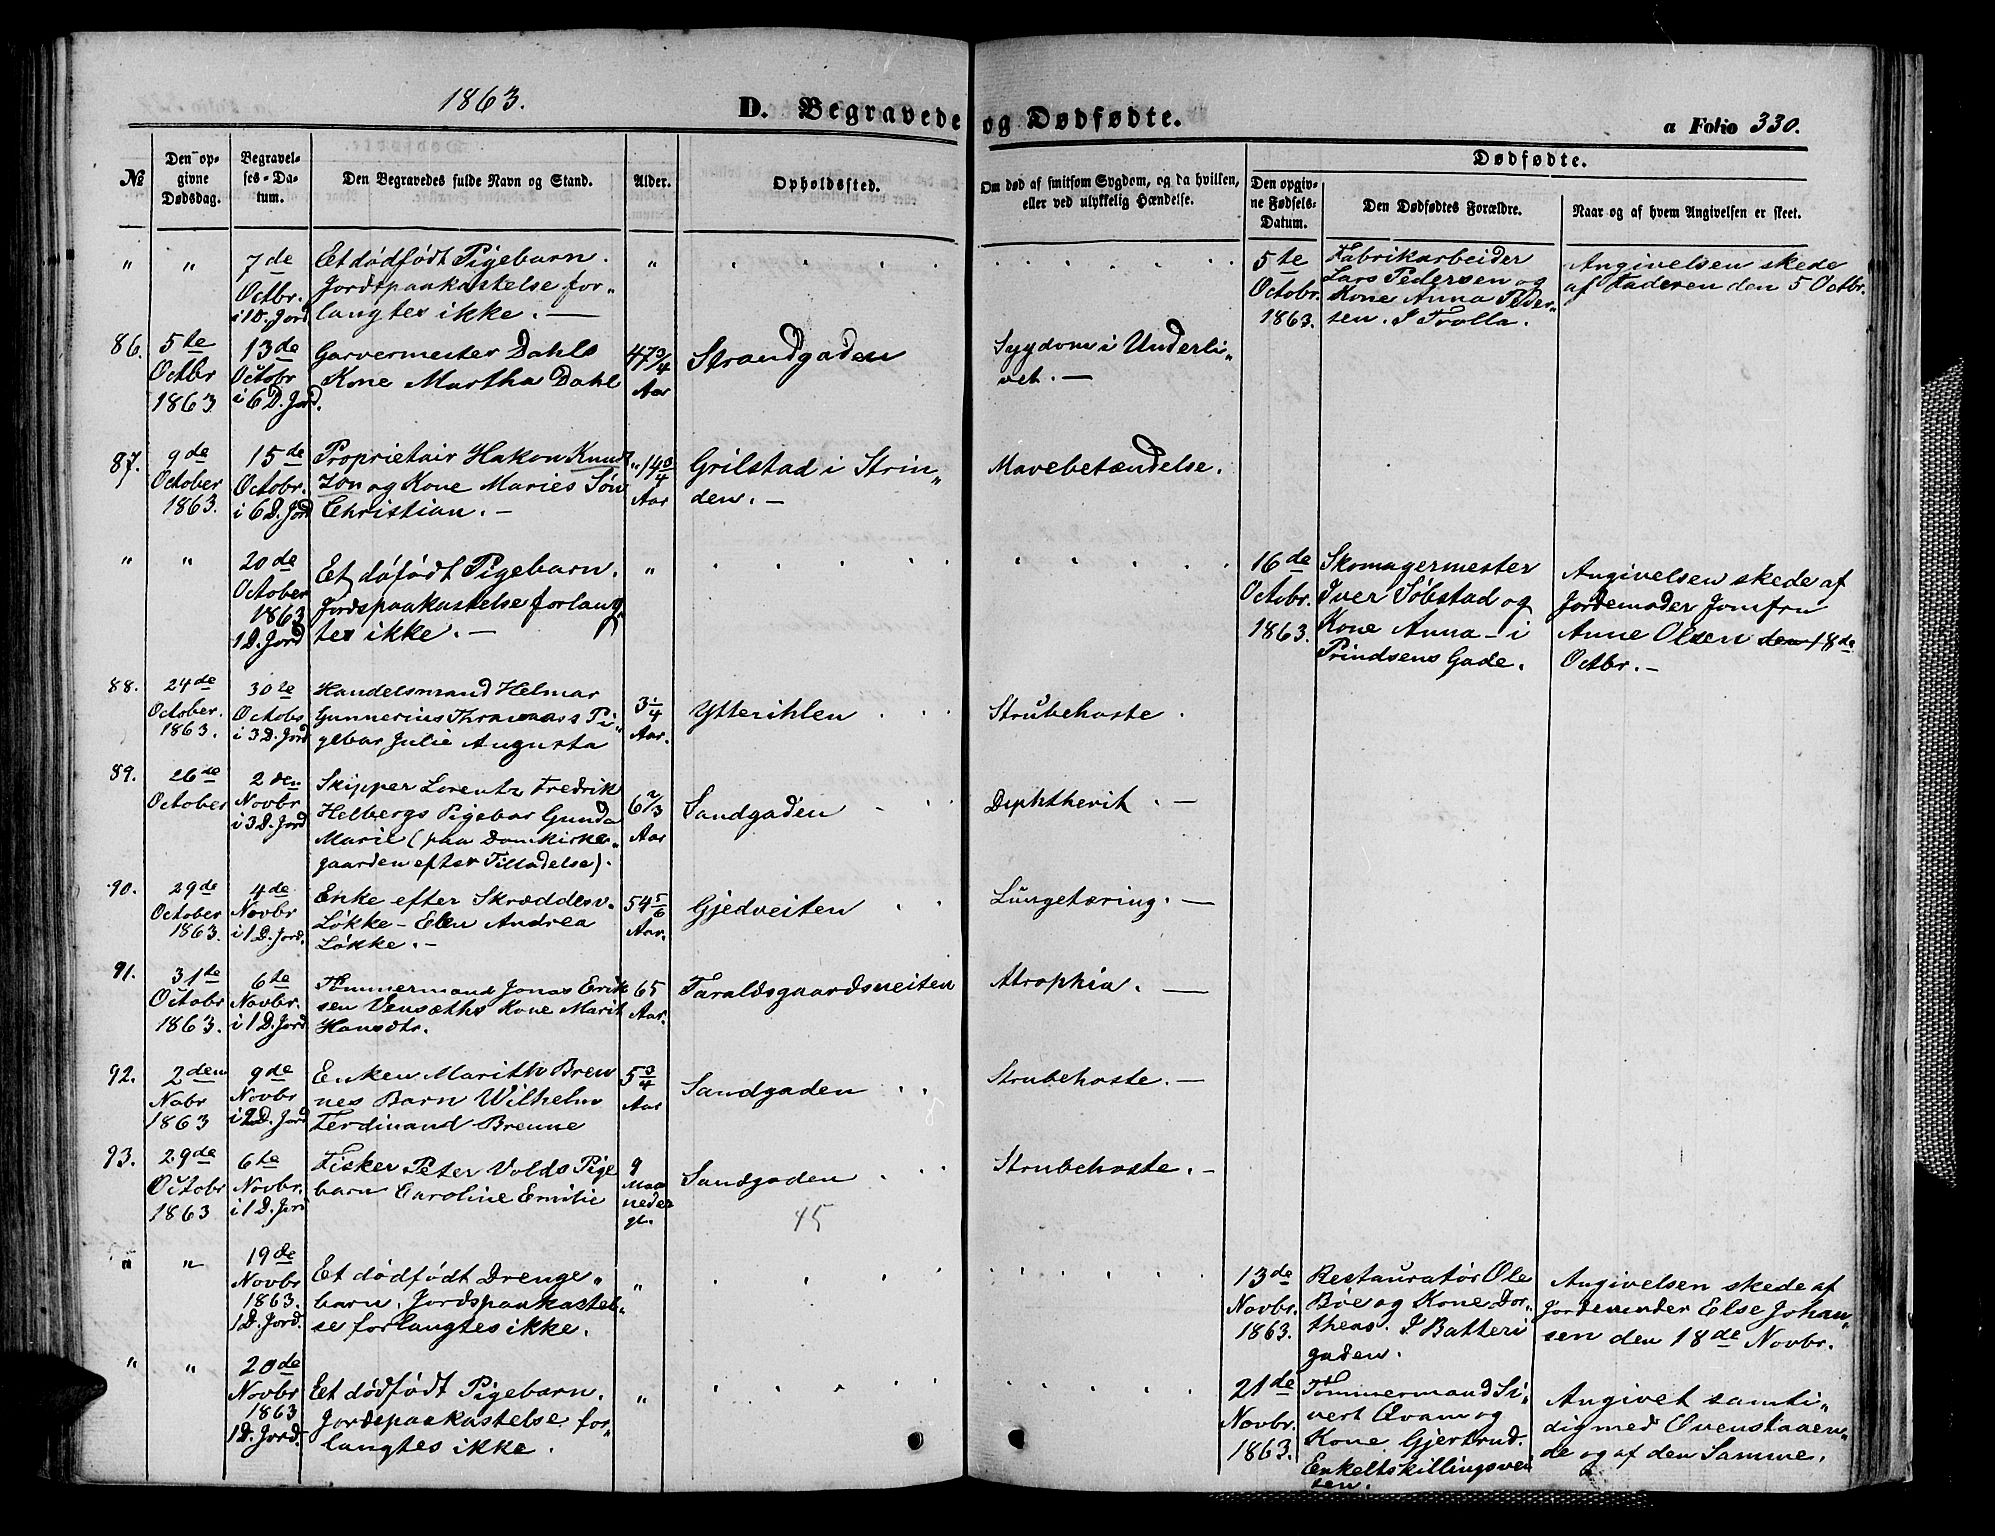 1863.
D. Begravede og Dødfødte.
a Folio 330.
№
Den op-
givne
Dødsdag.
Begravel-
ses-Da-
tum.
Den Begravedes fulde Navn og Stand.
Alder.
Opholdssted.
Om død af smitsom Sygdom, og da hvilken,
eller ved ulykkelig Hændelse.
Dødfødte.
Den opgiv-
ne Fødsels-
Datum.
Den Dødfødtes Forældre.
Naar og af hvem Angivelsen er skeet.
" "
7de
Octbr.
i 1 D. Jord
Et dødfødt Pigebarn.
Jordspaakastelse for-
langtes ikke. —
"
5te
Octobr.
1863.
Fabrikarbeider
Lars Pedersen og
Kone Anna Peder-
sen. I Trolla.
Angivelsen skede
af Faderen den 5 Octbr.
86.
5te
Octbr
1863
13de
Octobr
i 6 D. Jord.
Garvermester Dahls
Kone Martha Dahl
47 3/4
Aar
Strandgaden
Sygdom i Underli-
vet. —
87.
9de
October
1863.
15de
Octobr.
i 6 D. Jord
Proprietair Hakon Knud-
zon og Kone Maries Søn
Christian. —
14 3/4
Aar
Grilstad i Strin-
den. —
Mavebetændelse.
" "
20de
October
1863
1 D. Jord
Et døfødt Pigebarn.
Jordspaakastelse forlang-
tes ikke. —
"
16de
Octobr.
1863.
Skomagermester
Iver Søbstad og
Kone Anna - i
Prindsens Gade.
Angivelsen skede af
Jordemoder Jomfru
Anne Olsen den 18de
Octbr. —
88.
24de
October.
1863.
30te
Octobr
i 3 D. Jord
Handelsmand Helmar
Gunnerius Thromas Pi-
gebar Julie Augusta
3 1/4
Aar.
Ytterihlen
Strubehoste.
89.
26de
October
2den
Novbr
i 3 D. Jord
Skipper Lorentz Fredrik
Helbergs Pigebar Gunda
Marie (paa Domkirke-
gaarden efter Tilladelse).
6 2/3
Aar
Sandgaden
Diphtherit. —
90.
29de
October
1863.
4de
Novbr
i 1 D. Jord.
Enke efter Skrædderv.
Løkke - Elen Andrea
Løkke. —
54 5/6
Aar.
Gjedveiten
Lungetæring. —
91.
31te
Octobr
1863.
6te
Novbr.
i 1 D. Jord
Tømmermand Jonas Erik
sen Vensæths Kone Marit
Hansdtr.
65
Aar.
Taraldsgaardsveiten
Atrophia. —
92.
2den
Nobr
1863
9de
Novbr
i 2 D. Jord
Enken Marith Bren
nes Barn Wilhelm
Ferdinand Brenne
5 3/4
Aar
Sandgaden
Strubehoste. —
93.
29de
Octobr
1863
6te
Novbr.
i 1 D. Jord
Fisker Peter Volds Pige
barn Caroline Emilie
9
Maa
neder
gl.
Sandgaden
Strubehoste. —
45
" "
19de
Novbr
1863.
1 D. Jord.
Et dødfødt Drenge-
barn. Jordspaakastel-
se forlangtes ikke.
"
13de
Novbr.
1863.
Restauratør Ole
Bøe og Kone Dor-
theas. I Batteri
gaden.
Angivelsen skede af
Jordemoder Else Johan-
sen den 18de Novbr.
" "
20de
Novbr
1863
1 D. Jord.
Et dødfødt Pigebarn.
Jordspaakastelse for-
langtes ikke.
"
21de
Novbr.
1863.
Tømmermand Si-
vert Qvam og
Kone Gjertrud.
Enkeltskillingsvei
ten.
Angivet samti-
dig med Ovenstaaen-
de og af den Samme.